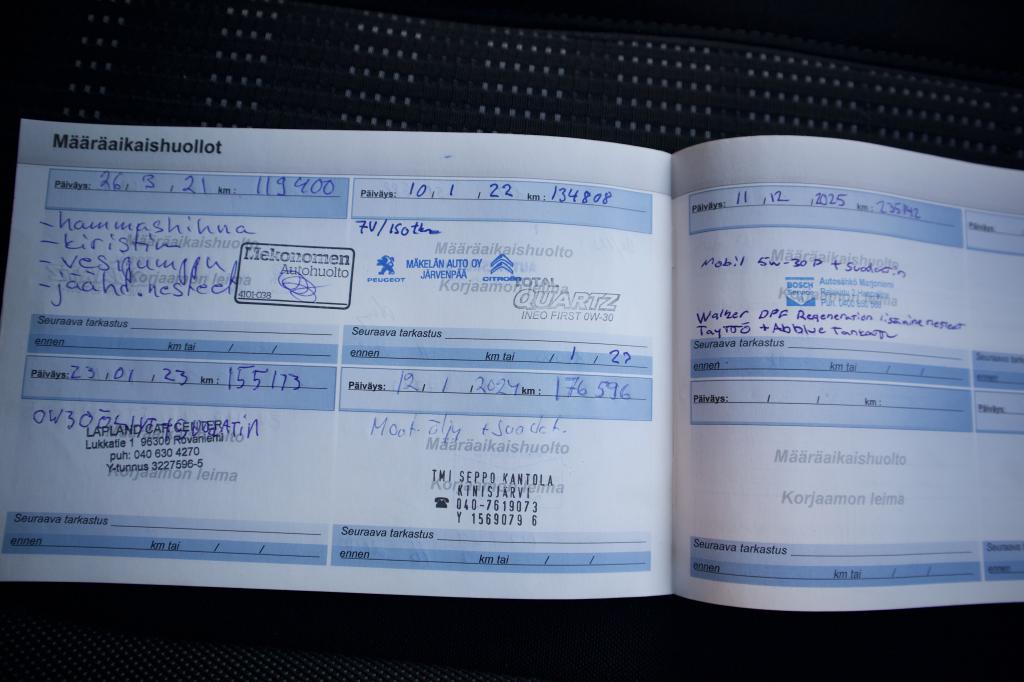 Määräaikaishuollot
Päiväys: 26, 3, 21 km: 119400
-hammashihna
-kiristin
-vesipumppu
-jäähd.nesteet
Määräaikaishuolto
Korjaamon leima
Mekonomen
Autohuolto
4101-098
Seuraava tarkastus
ennen km tai / /
Päiväys: 10, 1, 22 km: 134808
7V/150tkm
Määräaikaishuolto
Korjaamon leima
PEUGEOT
MÄKELÄN AUTO OY
JÄRVENPÄÄ
CITROËN
TOTAL
QUARTZ
INEO FIRST 0W-30
Seuraava tarkastus
ennen km tai / 1 / 23
Päiväys: 23, 01, 23 km: 155173
0W30 ÖLJYT + SUODATIN
LAPLAND CAR CENTER
Lukkatie 1 96300 Rovaniemi
puh: 040 630 4270
Y-tunnus 3227596-5
Korjaamon leima
Seuraava tarkastus
ennen km tai / /
Päiväys: 12, 1, 2024 km: 176 596
Moot-öljy + suodat.
Määräaikaishuolto
Korjaamon leima
TMI SEPPO KANTOLA
KINISJÄRVI
☎ 040-7619073
Y 1569079 6
Seuraava tarkastus
ennen km tai / /
Päiväys: 11, 12, 2025 km: 235142
Määräaikaishuolto
Mobil 5W-30 P + Suodatin
BOSCH
Service
Autosähkö Marjoniemi
Walker DPF Regeneration lisäaine nesteet
Täyttö + Adblue Tankattu
Seuraava tarkastus
ennen km tai / /
Päiväys: / / km:
Määräaikaishuolto
Korjaamon leima
Seuraava tarkastus
ennen km tai / /
Päiväys:
Seuraava tarkastus
ennen
Päiväys:
Seuraava
ennen